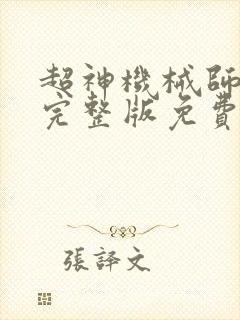 超神機械師
完整版免費
張譯文